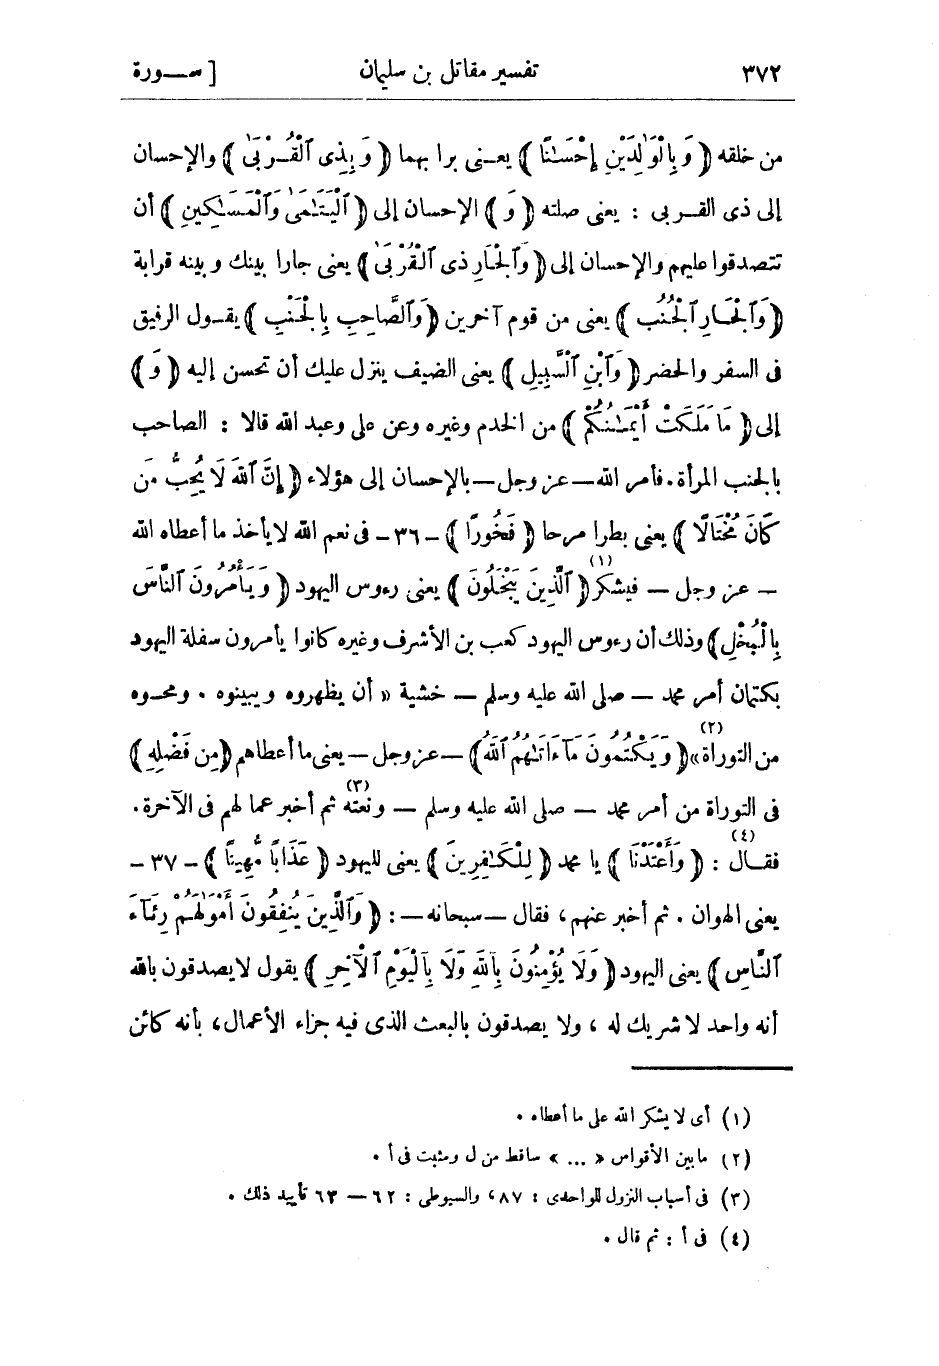 ٣٧٢ تفسير مقاتل بن سليمان [ سـورة
من خلقه ﴿ وَبِالْوَٰلِدَيْنِ إِحْسَـٰنًا ﴾ يعـنى برا بهما ﴿ وَبِذِى ٱلْقُـرْبَىٰ ﴾ والإحسان
إلى ذى القـربى : يعنى صلته ﴿ وَ ﴾ الإحسان إلى ﴿ ٱلْيَتَـٰمَىٰ وَٱلْمَسَـٰكِينِ ﴾ أن
تتصدقوا عليهم والإحسان إلى ﴿ وَٱلْجَارِ ذى ٱلْقُرْبَىٰ ﴾ يعنى جارا بينك وبينه قرابة
﴿ وَٱلْجَـارِ ٱلْجُنُبِ ﴾ يعنى من قوم آخرين ﴿ وَٱلصَّاحِبِ بِالْجَنْبِ ﴾ يقـول الرفيق
فى السفر والحضر ﴿ وَٱبْنِ ٱلسَّبِيلِ ﴾ يعنى الضيف ينزل عليك أن تحسن إليه ﴿ وَ ﴾
إلى ﴿ مَا مَلَكَتْ أَيْمَـٰنُكُمْ ﴾ من الخدم وغيره وعن على وعبد الله قالا : الصاحب
بالجنب المرأة . فأمر الله — عز وجل — بالإحسان إلى هؤلاء ﴿ إِنَّ ٱللَّهَ لَا يُحِبُّ مَن
كَانَ مُخْتَالًا ﴾ يعنى بطرا مرحا ﴿ فَخُورًا ﴾ - ٣٦ - فى نعم الله لا يأخذ ما أعطاه الله
— عز وجل — فيشكر (١) ﴿ ٱلَّذِينَ يَبْخَلُونَ ﴾ يعنى رءوس اليهود ﴿ وَيَأْمُرُونَ ٱلنَّاسَ
بِالْبُخْلِ ﴾ وذلك أن رءوس اليهود كعب بن الأشرف وغيره كانوا يأمرون سفلة اليهود
بكتمان أمر محمد — صلى الله عليه وسلم — خشية « أن يظهروه ويبينوه . ومحوه
من التوراة » (٢) ﴿ وَيَكْتُمُونَ مَآ ءَاتَـٰهُمُ ٱللَّهُ ﴾ — عز وجل — يعنى ما أعطاهم ﴿ مِن فَضْلِهِ ﴾
فى التوراة من أمر محمد — صلى الله عليه وسلم — ونعته (٣) ثم أخبر عما لهم فى الآخرة .
فقـال (٤) : ﴿ وَأَعْتَدْنَا ﴾ يا محمد ﴿ لِلْكَـٰفِرِينَ ﴾ يعنى لليهود ﴿ عَذَابًا مُّهِينًا ﴾ - ٣٧ -
يعنى الهوان . ثم أخبر عنهم ، فقال — سبحانه — : ﴿ وَٱلَّذِينَ يُنفِقُونَ أَمْوَٰلَهُمْ رِئَآءَ
ٱلنَّاسِ ﴾ يعنى اليهود ﴿ وَلَا يُؤْمِنُونَ بِٱللَّهِ وَلَا بِٱلْيَوْمِ ٱلْآخِرِ ﴾ يقول لا يصدقون بالله
أنه واحد لا شريك له ، ولا يصدقون بالبعث الذى فيه جزاء الأعمال ، بأنه كائن
(١) أى لا يشكر الله على ما أعطاه .
(٢) ما بين الأقواس « ... » ساقط من ل ومثبت فى أ .
(٣) فى أسباب النزول للواحدى : ٨٧ ، والسيوطى : ٦٢ — ٦٣ تأييد ذلك .
(٤) فى أ : ثم قال .